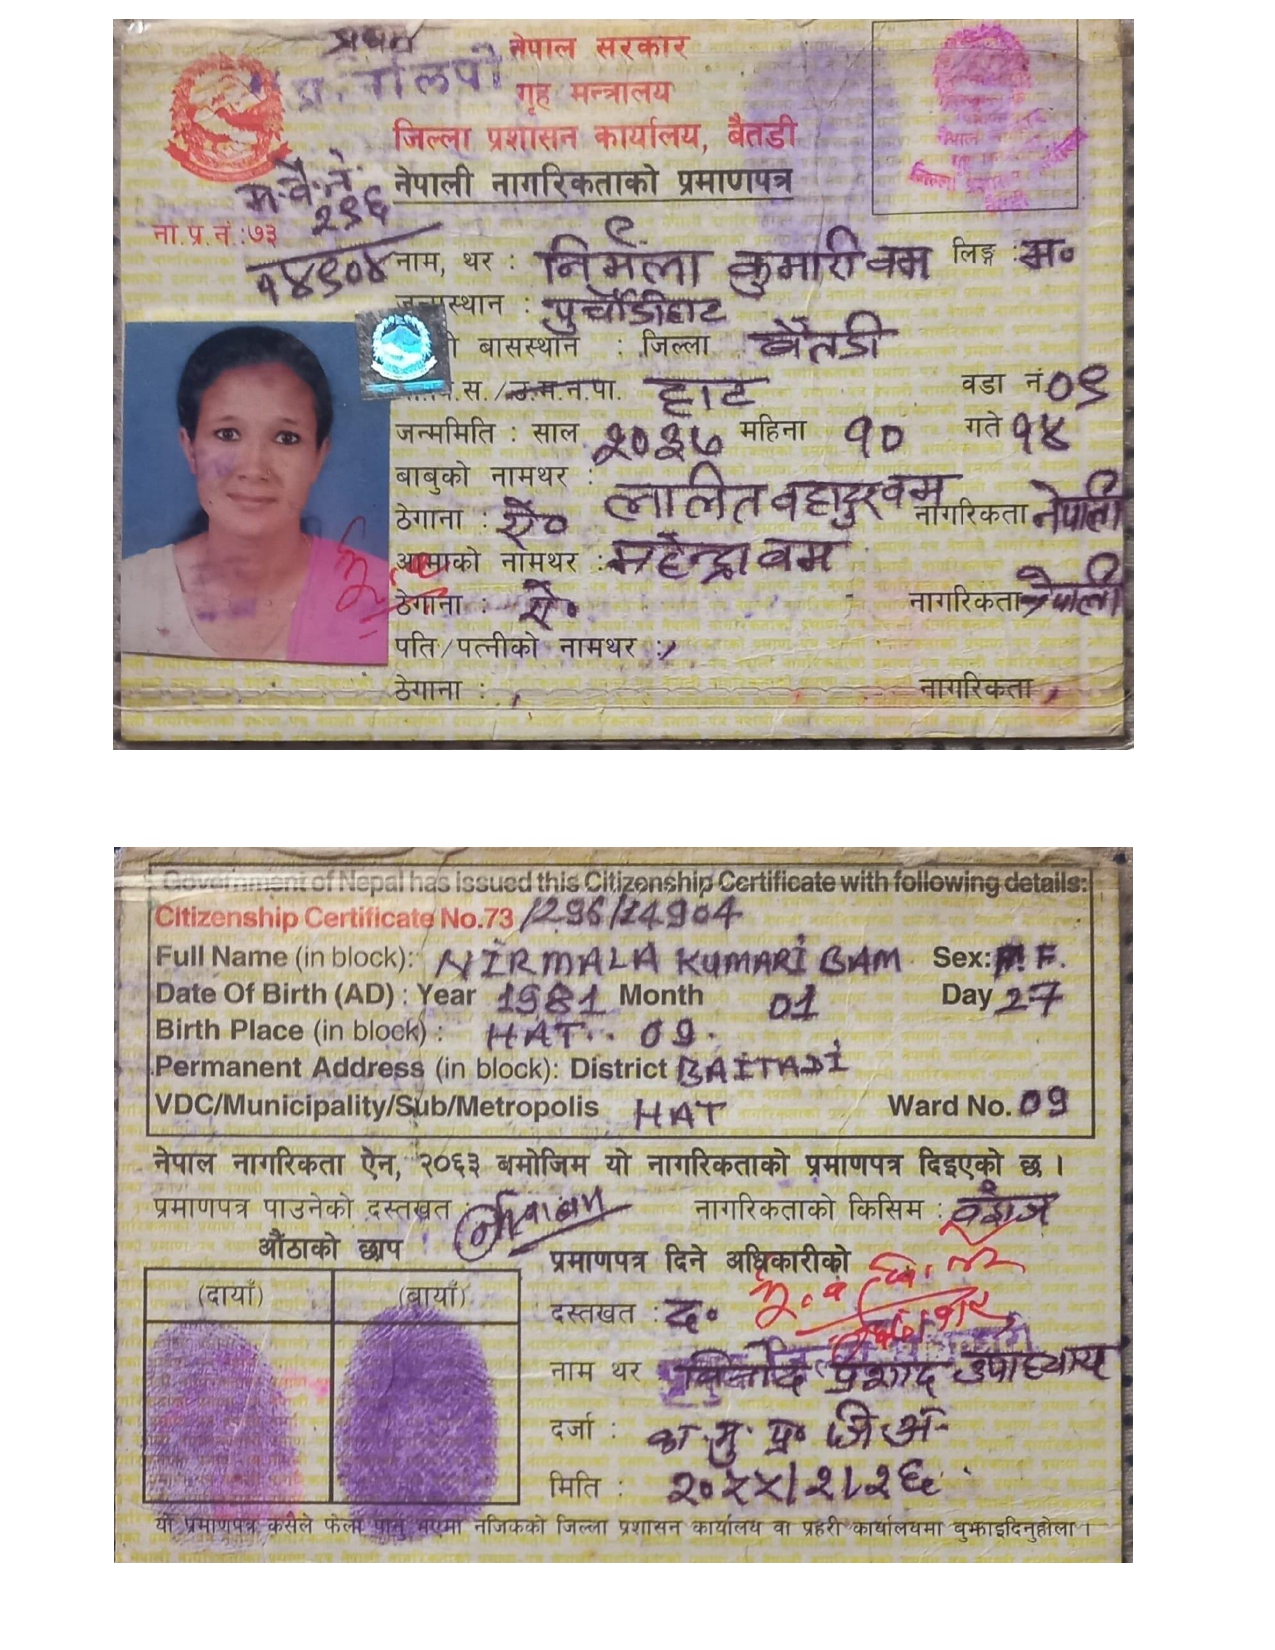 प्र. र्गलपी
नेपाल सरकार
गृह मन्त्रालय
जिल्ला प्रशासन कार्यालय, बैतडी
नेपाली नागरिकताको प्रमाणपत्र
ना.प्र.नं.:७३
२९६
१४९०४
नाम, थर : निर्मला कुमारी बम लिङ्ग : म॰
स्थान : पुर्चौडीहाट
बासस्थान : जिल्ला बैतडी
वि.स./उ.म.न.पा. हाट वडा नं ०९
जन्ममिति : साल २०३७ महिना १० गते १४
बाबुको नामथर : ललित बहादुर बम
ठेगाना : ऐ॰ नागरिकता नेपाली
आमाको नामथर : महेन्द्रा बम
ठेगाना : ऐ॰ नागरिकता नेपाली
पति/पत्नीको नामथर :
ठेगाना : नागरिकता
Government of Nepal has issued this Citizenship Certificate with following details:
Citizenship Certificate No.73/296/14904
Full Name (in block): NIRMALA KUMARI BAM Sex: F.
Date Of Birth (AD) : Year 1981 Month 01 Day 27
Birth Place (in block) : HAT. 09.
Permanent Address (in block): District BAITADI
VDC/Municipality/Sub/Metropolis HAT Ward No. 09
नेपाल नागरिकता ऐन, २०६३ बमोजिम यो नागरिकताको प्रमाणपत्र दिइएको छ ।
प्रमाणपत्र पाउनेको दस्तखत : नागरिकताको किसिम : वंशज
औंठाको छाप
प्रमाणपत्र दिने अधिकारीको
(दायाँ) (बायाँ)
दस्तखत : द॰
नाम थर प्रसाद उपाध्याय
दर्जा : का.मु. प्र॰ जि.अ.
मिति :
यो प्रमाणपत्र कसैले फेला पारेमा नजिकको जिल्ला प्रशासन कार्यालय वा प्रहरी कार्यालयमा बुझाइदिनुहोला ।